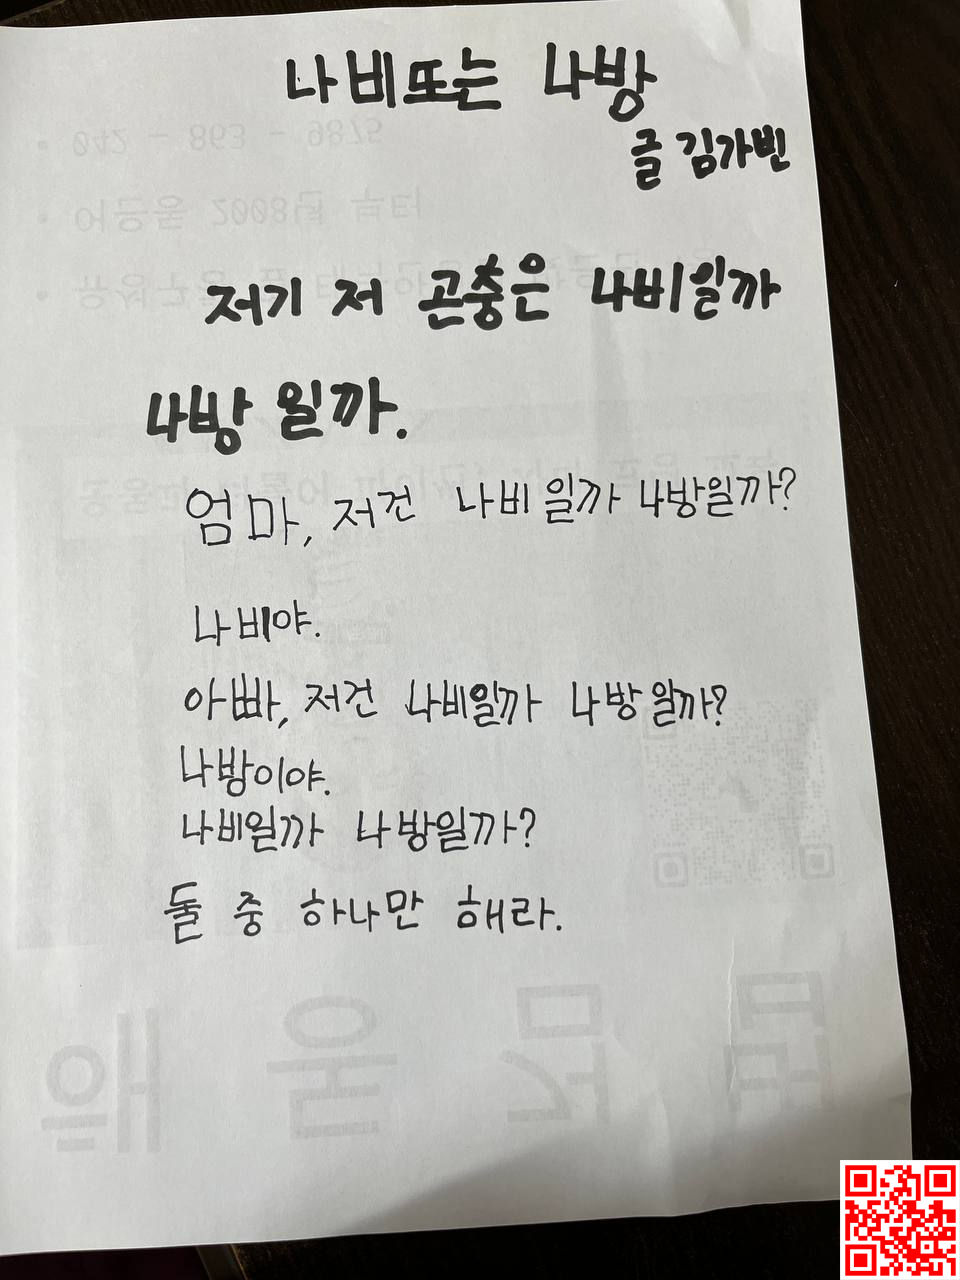 나비또는 나방
글 김가빈
저기 저 곤충은 나비일까
나방 일까.
엄마, 저건 나비 일까 나방일까?
나비야.
아빠, 저건 나비일까 나방일까?
나방이야.
나비일까 나방일까?
둘 중 하나만 해라.